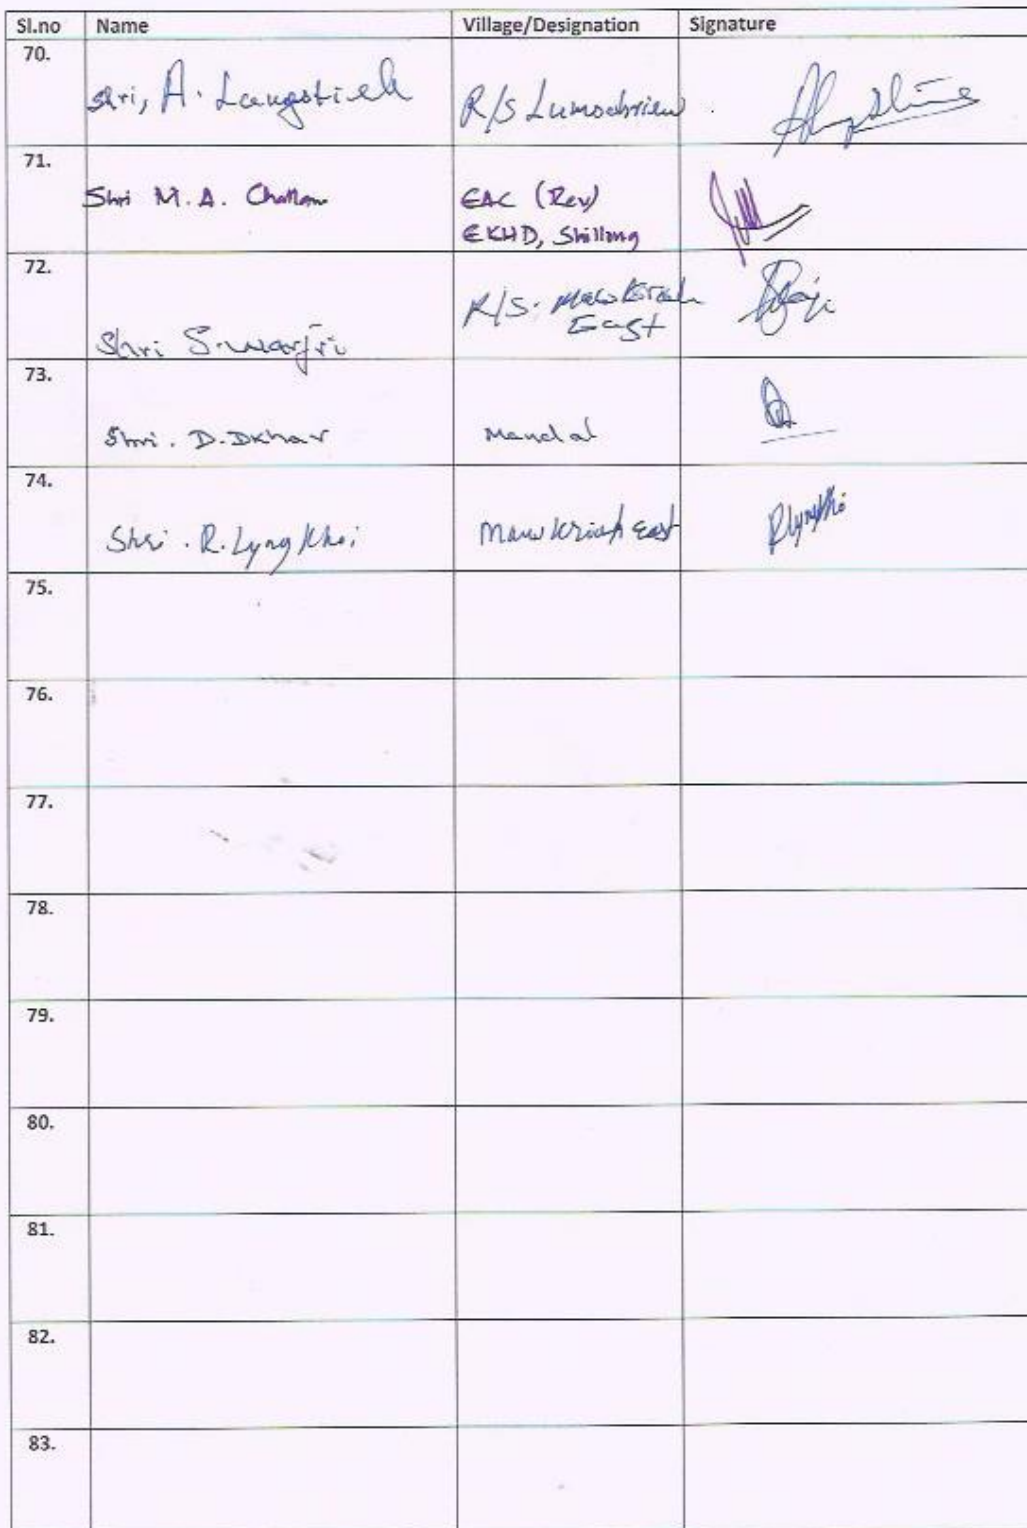 Sl.no Name Village/Designation Signature
70.
Shri, A. Langstieh R/S Lumsohriew
71.
Shri M.A. Challam EAC (Rev)
EKHD, Shillong
72.
R/S. Mawkriah
East
Shri S. Warjri
73.
Shri. D. Dkhar Mandal
74.
Shri. R. Lyngkhoi Mawkriah East RLyngkhoi
75.
76.
77.
78.
79.
80.
81.
82.
83.